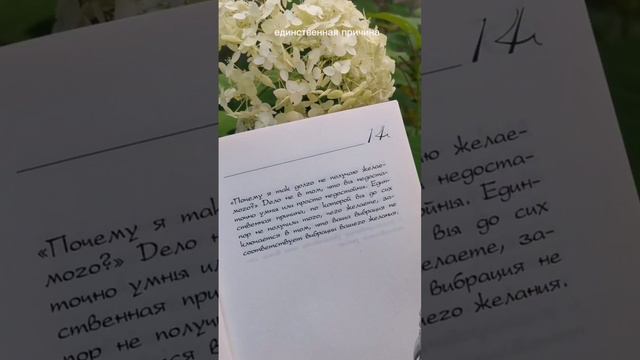 единственная причина
14
«Почему я так долго не получаю желае-
мого?» Дело не в том, что вы недоста-
точно умны или просто недостойны. Един-
ственная причина, по которой вы до сих
пор не получили того, чего желаете, за-
ключается в том, что ваша вибрация не
соответствует вибрации вашего желания.